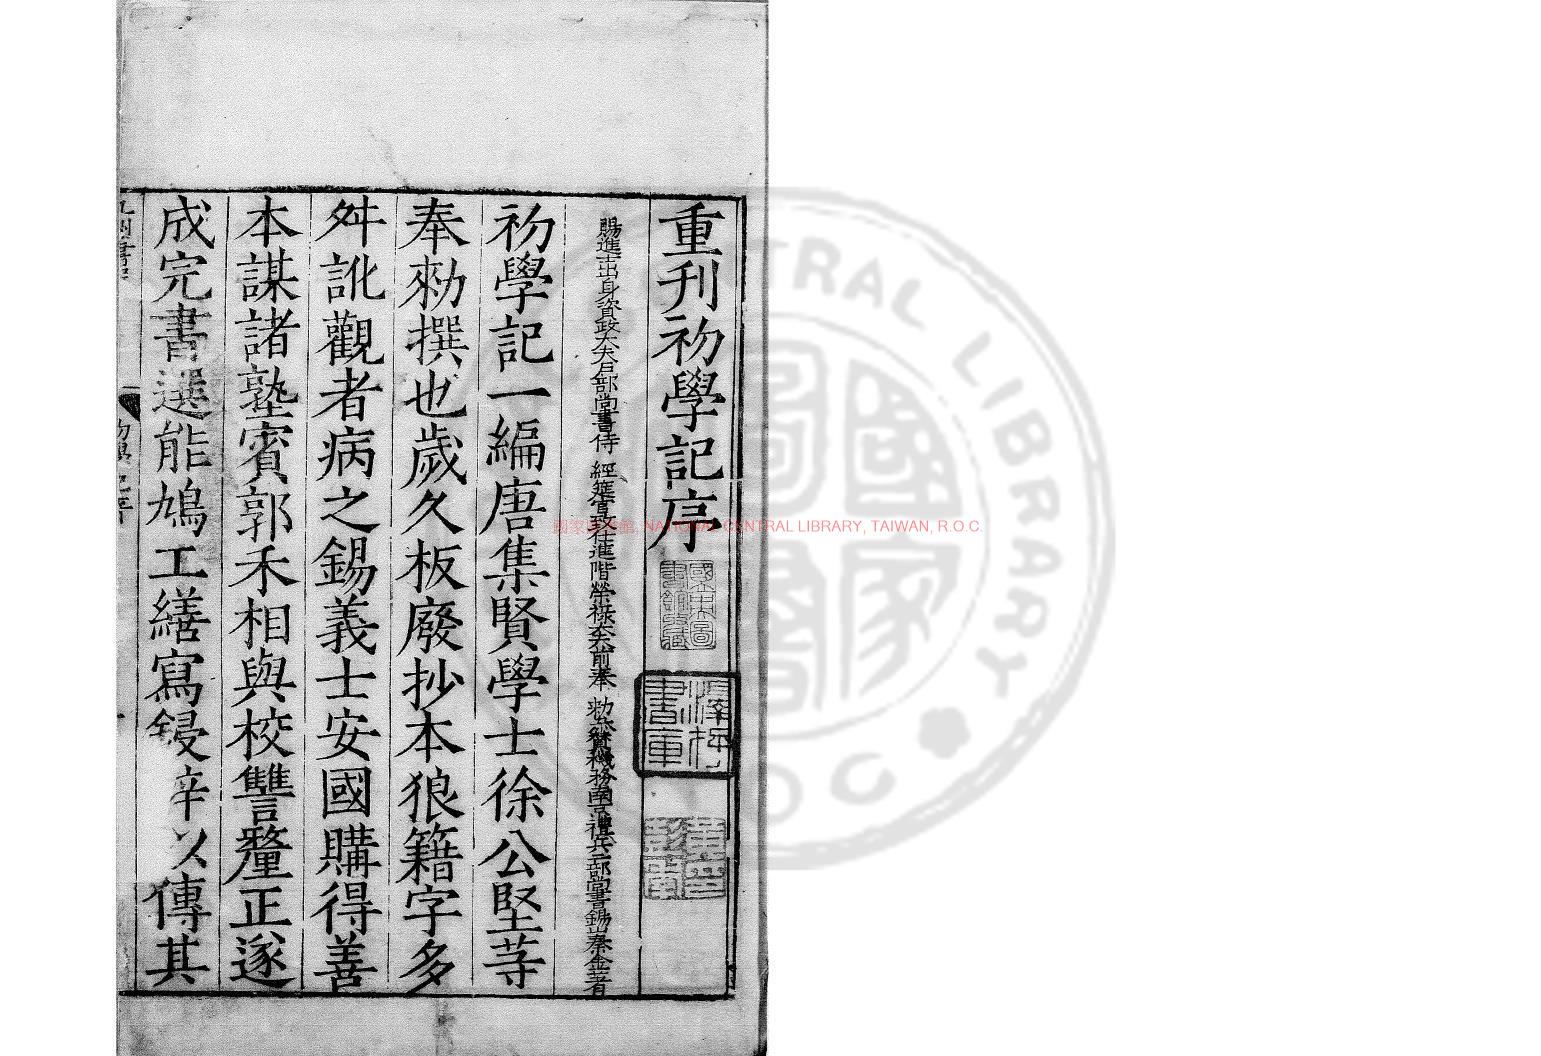 重刊初學記序
賜進士出身資政大夫戶部尚書侍 經筵 進階榮祿大夫前奉 勑 機務南京禮兵二部尚書錫山秦金著
初學記一編唐集賢學士徐公堅等
奉勑撰也歲久板廢抄本狼籍字多
舛訛觀者病之錫義士安國購得善
本謀諸塾賓郭禾相與校讐釐正遂
成完書選能鳩工繕寫鋟梓以傳其
國家圖書館, NATIONAL CENTRAL LIBRARY, TAIWAN, R.O.C.
CENTRAL LIBRARY
R.O.C
國家圖書